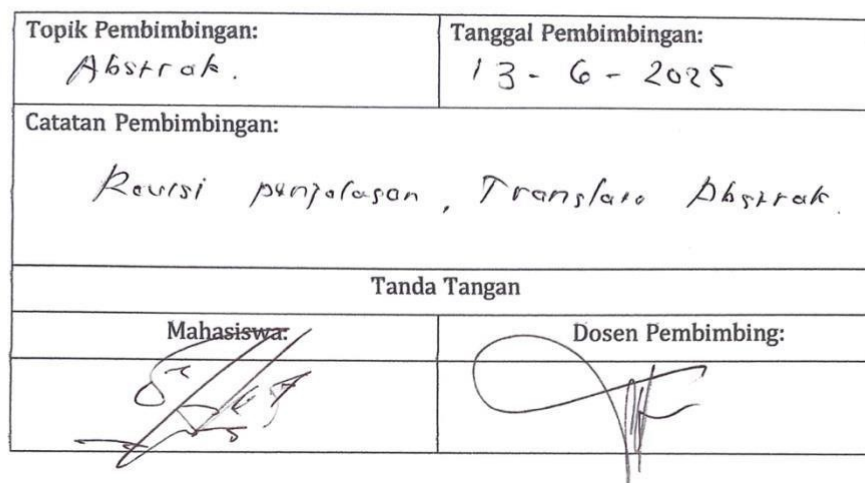 Topik Pembimbingan: Tanggal Pembimbingan:
Abstrak. 13 - 6 - 2025
Catatan Pembimbingan:
Revisi penjelasan, Translate Abstrak.
Tanda Tangan
Mahasiswa: Dosen Pembimbing: